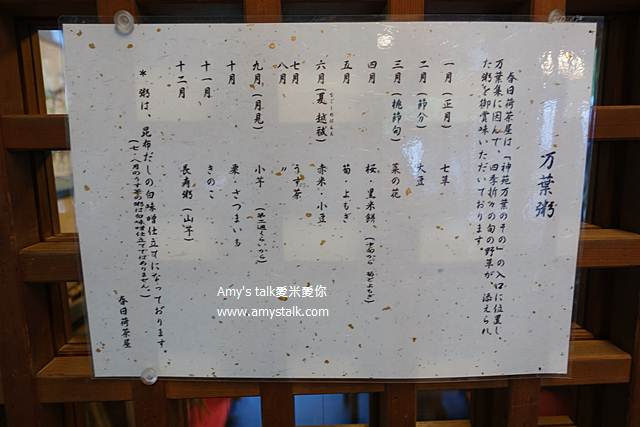 万葉粥
春日荷茶屋は「神苑万葉のその」の入口に位置し、
万葉集に因んで、四季折々の旬の野菜が添えられ
た粥を御賞味いただいております。
一月(正月) 七草
二月(節分) 大豆
三月(桃節句) 菜の花
四月 桜・黒米餅、
五月 筍・よもぎ
六月(夏越祓) 赤米・小豆
七月 うす茶
八月 〃
九月(月見) 小芋
十月 栗・さつまいも
十一月 きのこ
十二月 長寿粥(山芋)
* 粥は、昆布だしの白味噌仕立てになっております。
(七・八月のうす茶の粥は白味噌仕立てではありません。)
春日荷茶屋
Amy's talk愛米愛你
www.amystalk.com